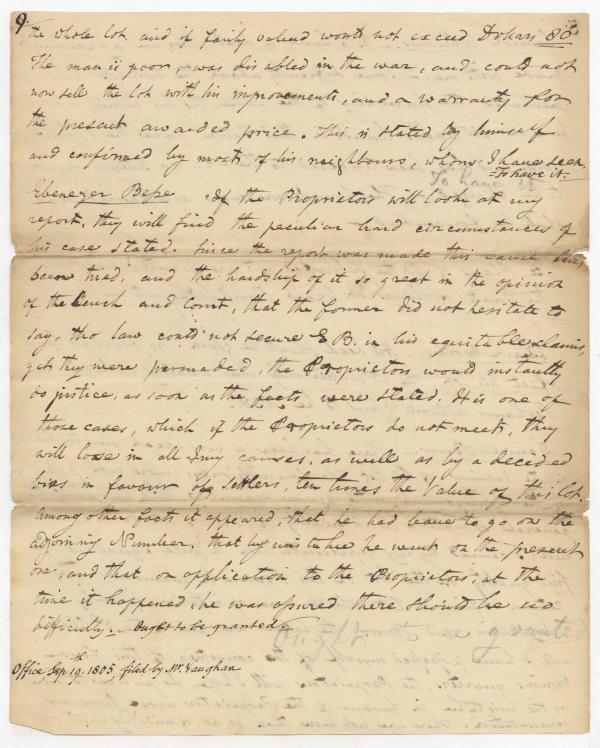 9.
the whole lot and if fairly valued would not exceed Dollars 80
The man is poor, was disabled in the war, and could not
now sell the lot with his improvements, and a warranty for
the present awarded price. This is stated by himself
and confirmed by most of his neighbours, whom I have seen.
=To have it.=
Ebenezer Besse If the Proprietors will look at my
report, they will find the peculiar hard circumstances of
his case stated. Since the report was made this cause has
been tried, and the hardship of it so great in the opinion
of the Bench and Court, that the former did not hesitate to
say, tho law could not secure E B. in his equitable claims,
yet they were persuaded, the Proprietors would instantly
do justice, as soon as the facts were stated. It is one of
those cases, which if the Proprietors do not meet, they
will lose in all Jury causes, as well as by a decided
bias in favour of settlers, ten times the Value of this lot.
Among other facts it appeared, that he had leave to go on the
adjoining Number, that by mistake he went on the present
one, and that on application to the Proprietors, at the
time it happened, he was assured there should be no
difficulty. Ought to be granted.
Office, Sep 19th. 1805, filed by Mr. Vaughan